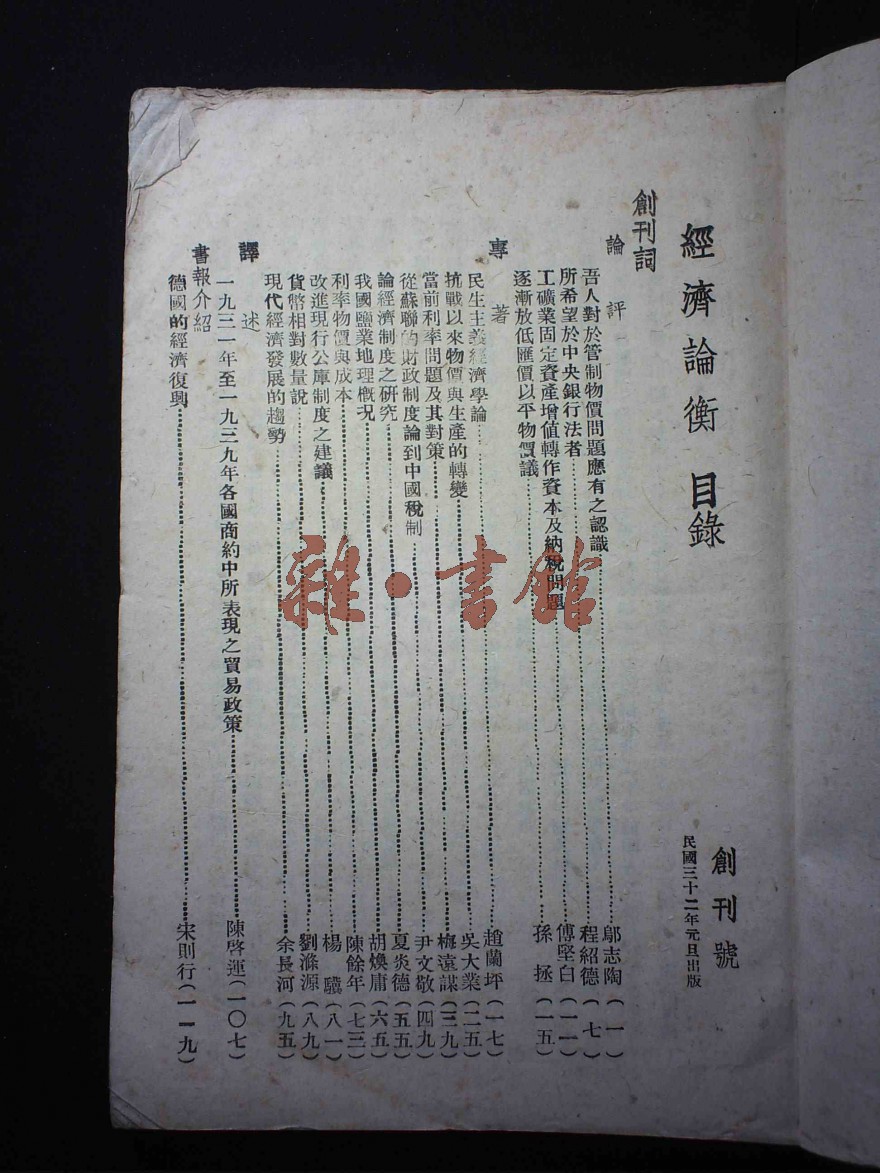 經濟論衡 目錄
創刊號
民國三十二年元旦出版
創刊詞
論評
吾人對於管制物價問題應有之認識……鄔志陶(一)
所希望於中央銀行法者……程紹德(七)
工礦業固定資產增值轉作資本及納稅問題……傅堅白(一一)
逐漸放低匯價以平物價議……孫拯(一五)
專著
民生主義經濟學論……趙蘭坪(一七)
抗戰以來物價與生產的轉變……吳大業(二五)
當前利率問題及其對策……梅遠謀(三九)
從蘇聯的財政制度論到中國稅制……尹文敬(四九)
論經濟制度之研究……夏炎德(五五)
我國鹽業地理概況……胡煥庸(六五)
利率物價與成本……陳餘年(七三)
改進現行公庫制度之建議……楊驥(八一)
貨幣相對數量說……劉滌源(八九)
現代經濟發展的趨勢……余長河(九五)
譯述
一九三一年至一九三九年各國商約中所表現之貿易政策……陳啓運(一〇七)
書報介紹
德國的經濟復興……宋則行(一一九)
雜·書館